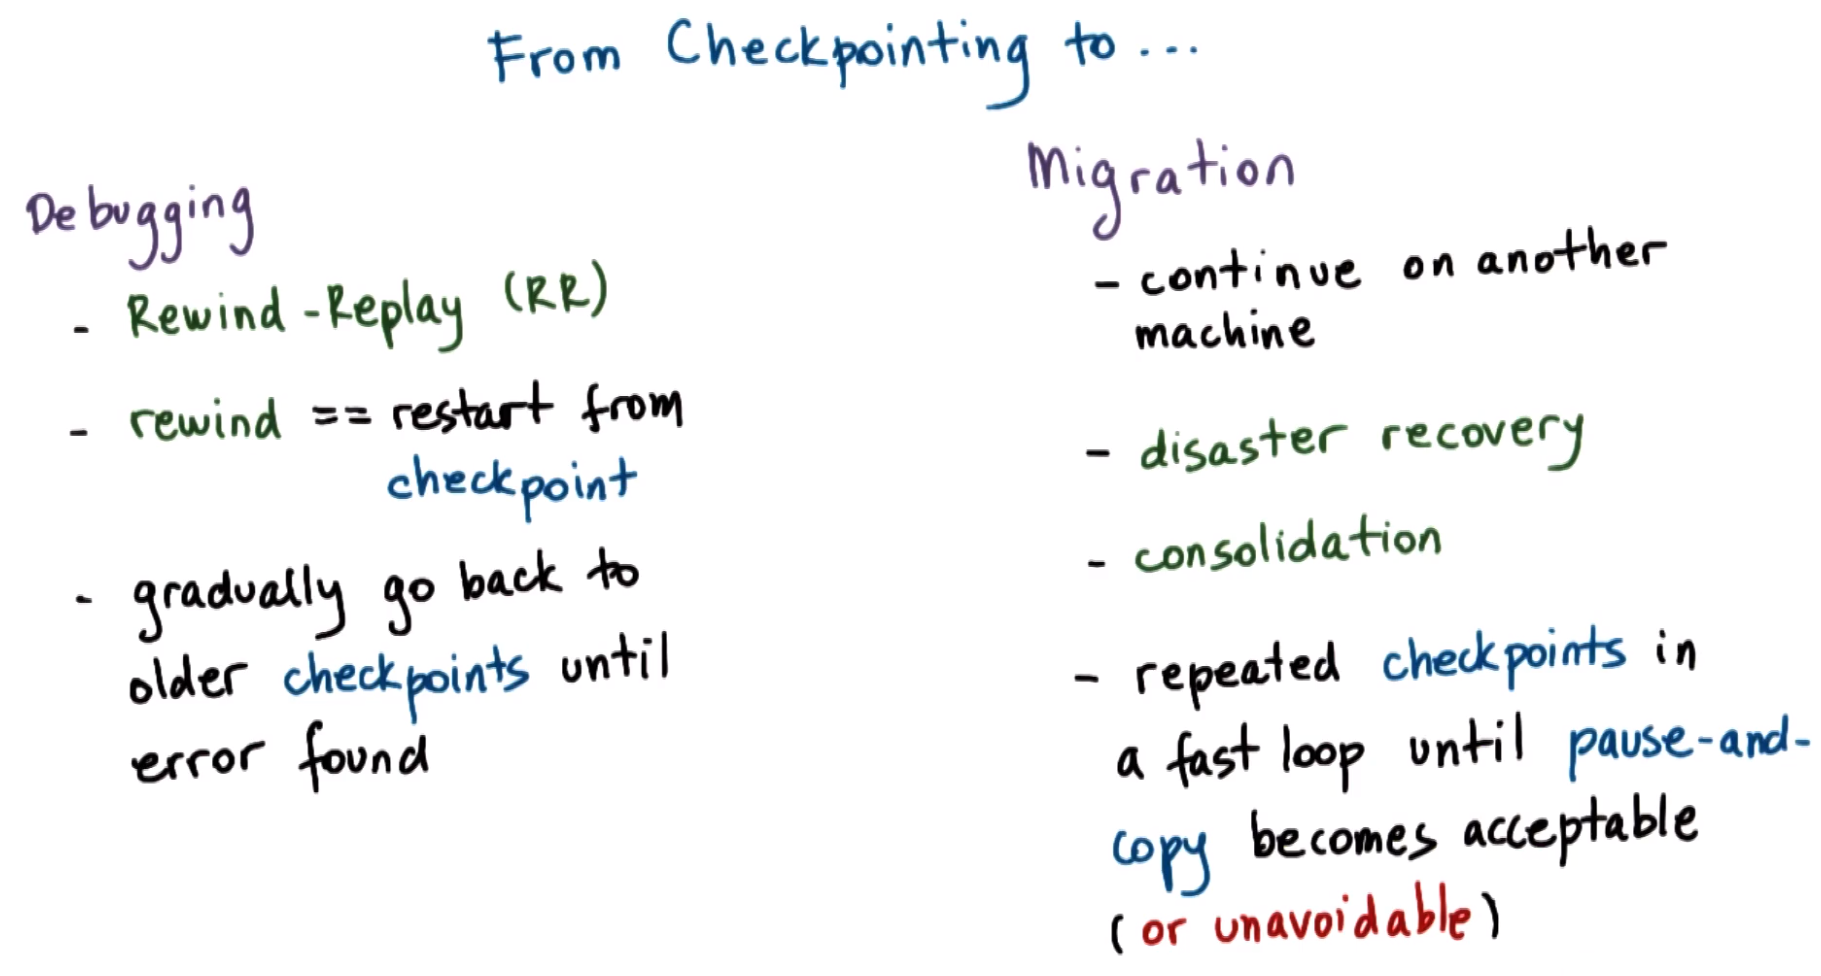 From Checkpointing to ...
Debugging
- Rewind-Replay (RR)
- rewind == restart from
checkpoint
- gradually go back to
older checkpoints until
error found
Migration
- continue on another
machine
- disaster recovery
- consolidation
- repeated checkpoints in
a fast loop until pause-and-
copy becomes acceptable
(or unavoidable)